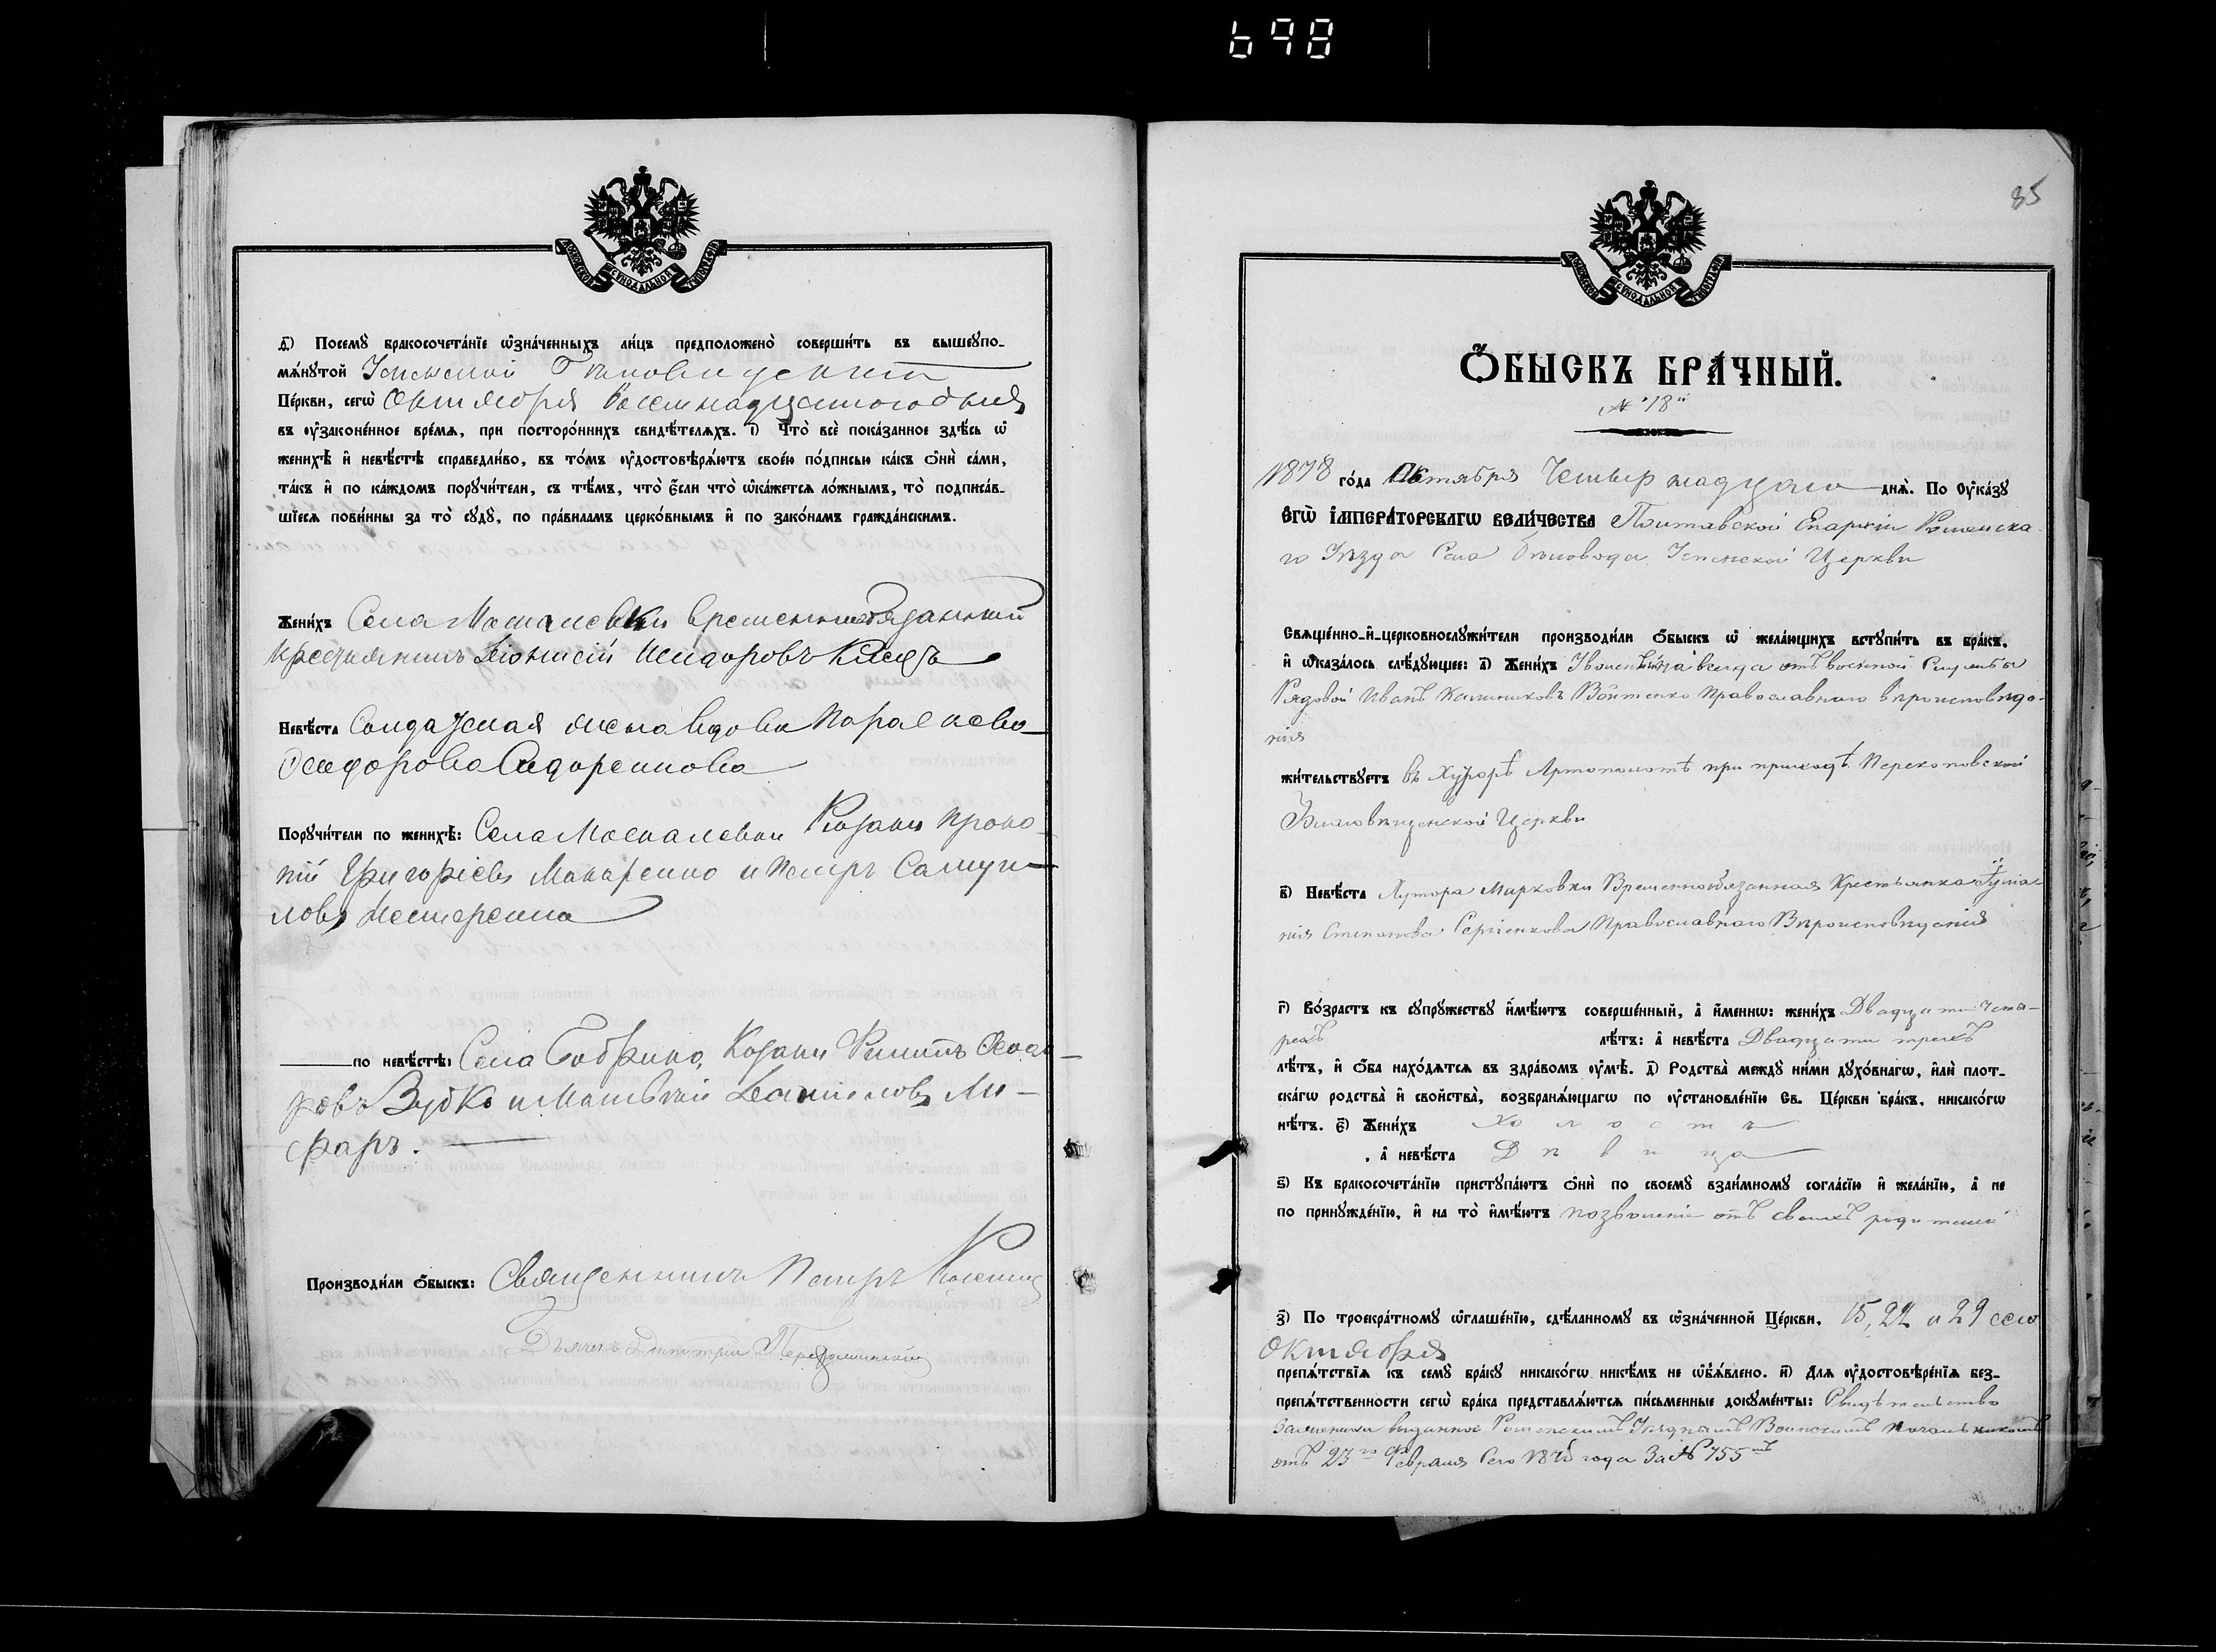 698
МОСКОВСКОЙ СУНОДАЛЬНОЙ ТУПОГРАФIИ
д҃) Посемꙋ̀ бракосочета́нїе ѡ҆зна́ченныхъ ли́цъ предположено̀ соверши́ть въ вышеꙋпо-
мѧ́нꙋтой Успенской
Це́ркви, сегѡ̀ Октября Восемнадцатого дня
въ ᲂу҆законе́нное вре́мѧ, при посторо́ннихъ свидѣ́телѧхъ. і҃) Что̀ всѐ пока́занное здѣ́сь ѡ҆
женихѣ̀ и҆ невѣ́стѣ справедли́во, въ то́мъ ᲂу҆достовѣрѧ́ютъ свое́ю по́дписью ка́къ ѻ҆нѝ са́ми,
та́къ и҆ по ка́ждомъ порꙋчи́тели, съ тѣ́мъ, что̀ є҆́сли что̀ ѡ҆ка́жетсѧ ло́жнымъ, то̀ подписа́в-
шїесѧ пови́нны за то̀ сꙋдꙋ̀, по пра́виламъ церко́внымъ и҆ по зако́намъ гражда́нскимъ.
Жени́хъ Села Москалевки временнообязанный
крестьянинъ Діонисій Исидоровъ
Невѣ́ста Солдатская жена вдова Параскева
Исидорова Сидоренкова
Порꙋчи́тели по женихѣ̀: Села Москалевки Козаки Проко-
пій Григоріевъ Макаренко и Петръ Самуи-
ловъ Нестеренко
по невѣ́стѣ: Села Бобрика, Козаки Филипъ
ровъ Зубко и Матвѣй Даниловъ Ли-
фаръ.
Производи́ли ѻ҆́быскъ: Священникъ Петръ
Дьячекъ Димитрій
85
МОСКОВСКОЙ СУНОДАЛЬНОЙ ТУПОГРАФIИ
Ѻ҆́БЫСКЪ БРА́ЧНЫЙ.
№ "18"
1878 го́да Октября Четырнадцаго днѧ̀. По ᲂу҆ка́зꙋ
Є҆ГѠ̀ І҆МПЕРА́ТОРСКАГѠ ВЕЛИ́ЧЕСТВА Полтавской Епархіи Роменска-
го Уѣзда Села Бѣловода Успенской Церкви
Свѧще́нно-и҆-церковнослꙋжи́тели производи́ли ѻ҆́быскъ ѡ҆ жела́ющихъ встꙋпи́ть въ бра́къ,
и҆ ѡ҆каза́лось слѣ́дꙋющее: а҃) Жени́хъ Уволенный навсегда отъ военной Службы
Рядовой Иванъ Калиниковъ Войтенко Православнаго вѣроисповѣда-
нія
жи́тельствꙋетъ въ Хуторѣ Артополотѣ при приходѣ Перекоповской
Благовѣщенской Церкви
в҃) Невѣ́ста Хутора Марковки Временнообязанная Крестьянка Іуліа-
нія Степанова Сергіенкова Православнаго Вѣроисповѣданія
г҃) Во́зрастъ къ сꙋпрꙋ́жествꙋ и҆мѣ́ютъ соверше́нный, а҆ и҆́меннѡ: жени́хъ Двадцати четы-
рехъ лѣ́тъ: а҆ невѣ́ста Двадцати трехъ
лѣ́тъ, и҆ ѻ҆́ба нахо́дѧтсѧ въ здра́вомъ ᲂу҆мѣ̀. д҃) Родства̀ междꙋ ни́ми дꙋхо́внагѡ, и҆лѝ плот-
ска́гѡ родства̀ и҆ сво́йства̀, возбранѧ́ющагѡ по ᲂу҆становле́нїю Св. Це́ркви бра́къ, никако́гѡ
нѣ́тъ. є҃) Жени́хъ Холостъ
, а҆ невѣ́ста Дѣвица
ѕ҃) Къ бракосочета́нїю пристꙋпа́ютъ ѻ҆нѝ по своемꙋ̀ взаи́мномꙋ согла́сїю и҆ жела́нїю, а҆ не
по принꙋжде́нїю, и҆ на то̀ и҆мѣ́ютъ позволеніе отъ своихъ родителей
з҃) По троекра́тномꙋ ѡ҆глаше́нїю, сдѣ́ланномꙋ въ ѡ҆зна́ченной Це́ркви, 15, 22 и 29 сего
Октября
препѧ́тствїѧ къ семꙋ̀ бра́кꙋ никако́гѡ никѣ́мъ не ѡ҆б̾ѧ́влено. и҃) Длѧ ᲂу҆достовѣре́нїѧ без-
препѧ́тственности сегѡ̀ бра́ка представлѧ́ютсѧ пи́сьменные докꙋме́нты: Свидѣтельство
выданное Роменскимъ Уѣзднымъ Воинскимъ Начальникомъ
отъ 23го Февраля Сего 1878 года За № 755мъ